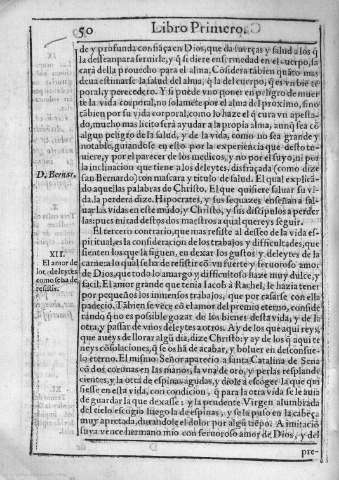 50
Libro Primero.
de y profunda confiãça en Dios, que da fuerças y salud a los q̃
la dessean para servirle, y q̃ si diere enfermedad en el cuerpo, sa
cará della prouecho para el alma. Cõsidera tãbien quãto mas
deua estimarse la salud del alma, q̃ la del cuerpo, q̃ es visible tẽ
poral, y perecedera. Y si puede vno poner en peligro de muer
te la vida corporal, no solamẽte por el alma del proximo, sino
tãbien por su vida corporal, como lo haze el q̃ cura vn apesta-
do, mucho mas licito será ayudar a la propia alma, aunq̃ sea cõ
algun peligro de la salud, y de la vida, como no sea grande y
notable, guiandose en esto por la experiencia que desto tu-
uiere, y por el parecer de los medicos, y no por el suyo, ni por
la inclinacion que tiene a los deleytes, disfraçada (como dize
D. Bernar.
san Bernardo) con mascara y titulo de salud. El qual explicã-
do aquellas palabras de Christo. El que quisiere saluar su vi-
da, la perderá dize. Hipocrates, y sus sequazes enseñan a sal-
uar las vidas en este mũdo, y Christo, y sus discipulos a perder
las: pues mirad destos dos maestros a qual quereys seguir.
El tercero contrario, que mas resiste al desseo de la vida es-
piritual, es la consideracion de los trabajos y difficultades, que
XII.
El amor de
los deleytes
como se ha de
resistir.
sienten los que la siguen, en dexar los gustos y deleytes de la
carne, a lo qual se ha de resistir cõ vn fuerte y feruoroso amor
de Dios, que todo lo amargo y difficultoso haze muy dulce, y
facil. El amor grande que tenia Iacob a Rachel, le hazia tener
por pequeños los inmensos trabajos, que por casarse con ella
padecio. Tãbien se vẽce cõ el amor del premio eterno, conside
rãndo q̃ no es possible gozar de los bienes desta vida, y de la
otra, y passar de vnos deleytes a otros. Ay de los que aqui reys,
que aueys de llorar algũ dia, dize Christo: y ay de los q̃ aqui te
neys cõsolaciones, q̃ se os hã de acabar, y boluer en desconsue-
lo eterno. El mismo Señor aparecio a santa Catalina de Sena
cõ dos coronas en las manos, la vna de oro, y perlas resplande
cientes, y la otra de espinas agudas, y diole a escoger la que qui
siesse en esta vida, con condicion, q̃ para la otra vida se le auia
de guardar la que dexasse: y la prudente Virgen alumbrada
del cielo escogio luego la de espinas, y se la puso en la cabeça
muy apretada, durandole el dolor por algũ tiẽpo. A imitaciõ
suya vence hermano mio con feruoroso amor de Dios, y del
pre-